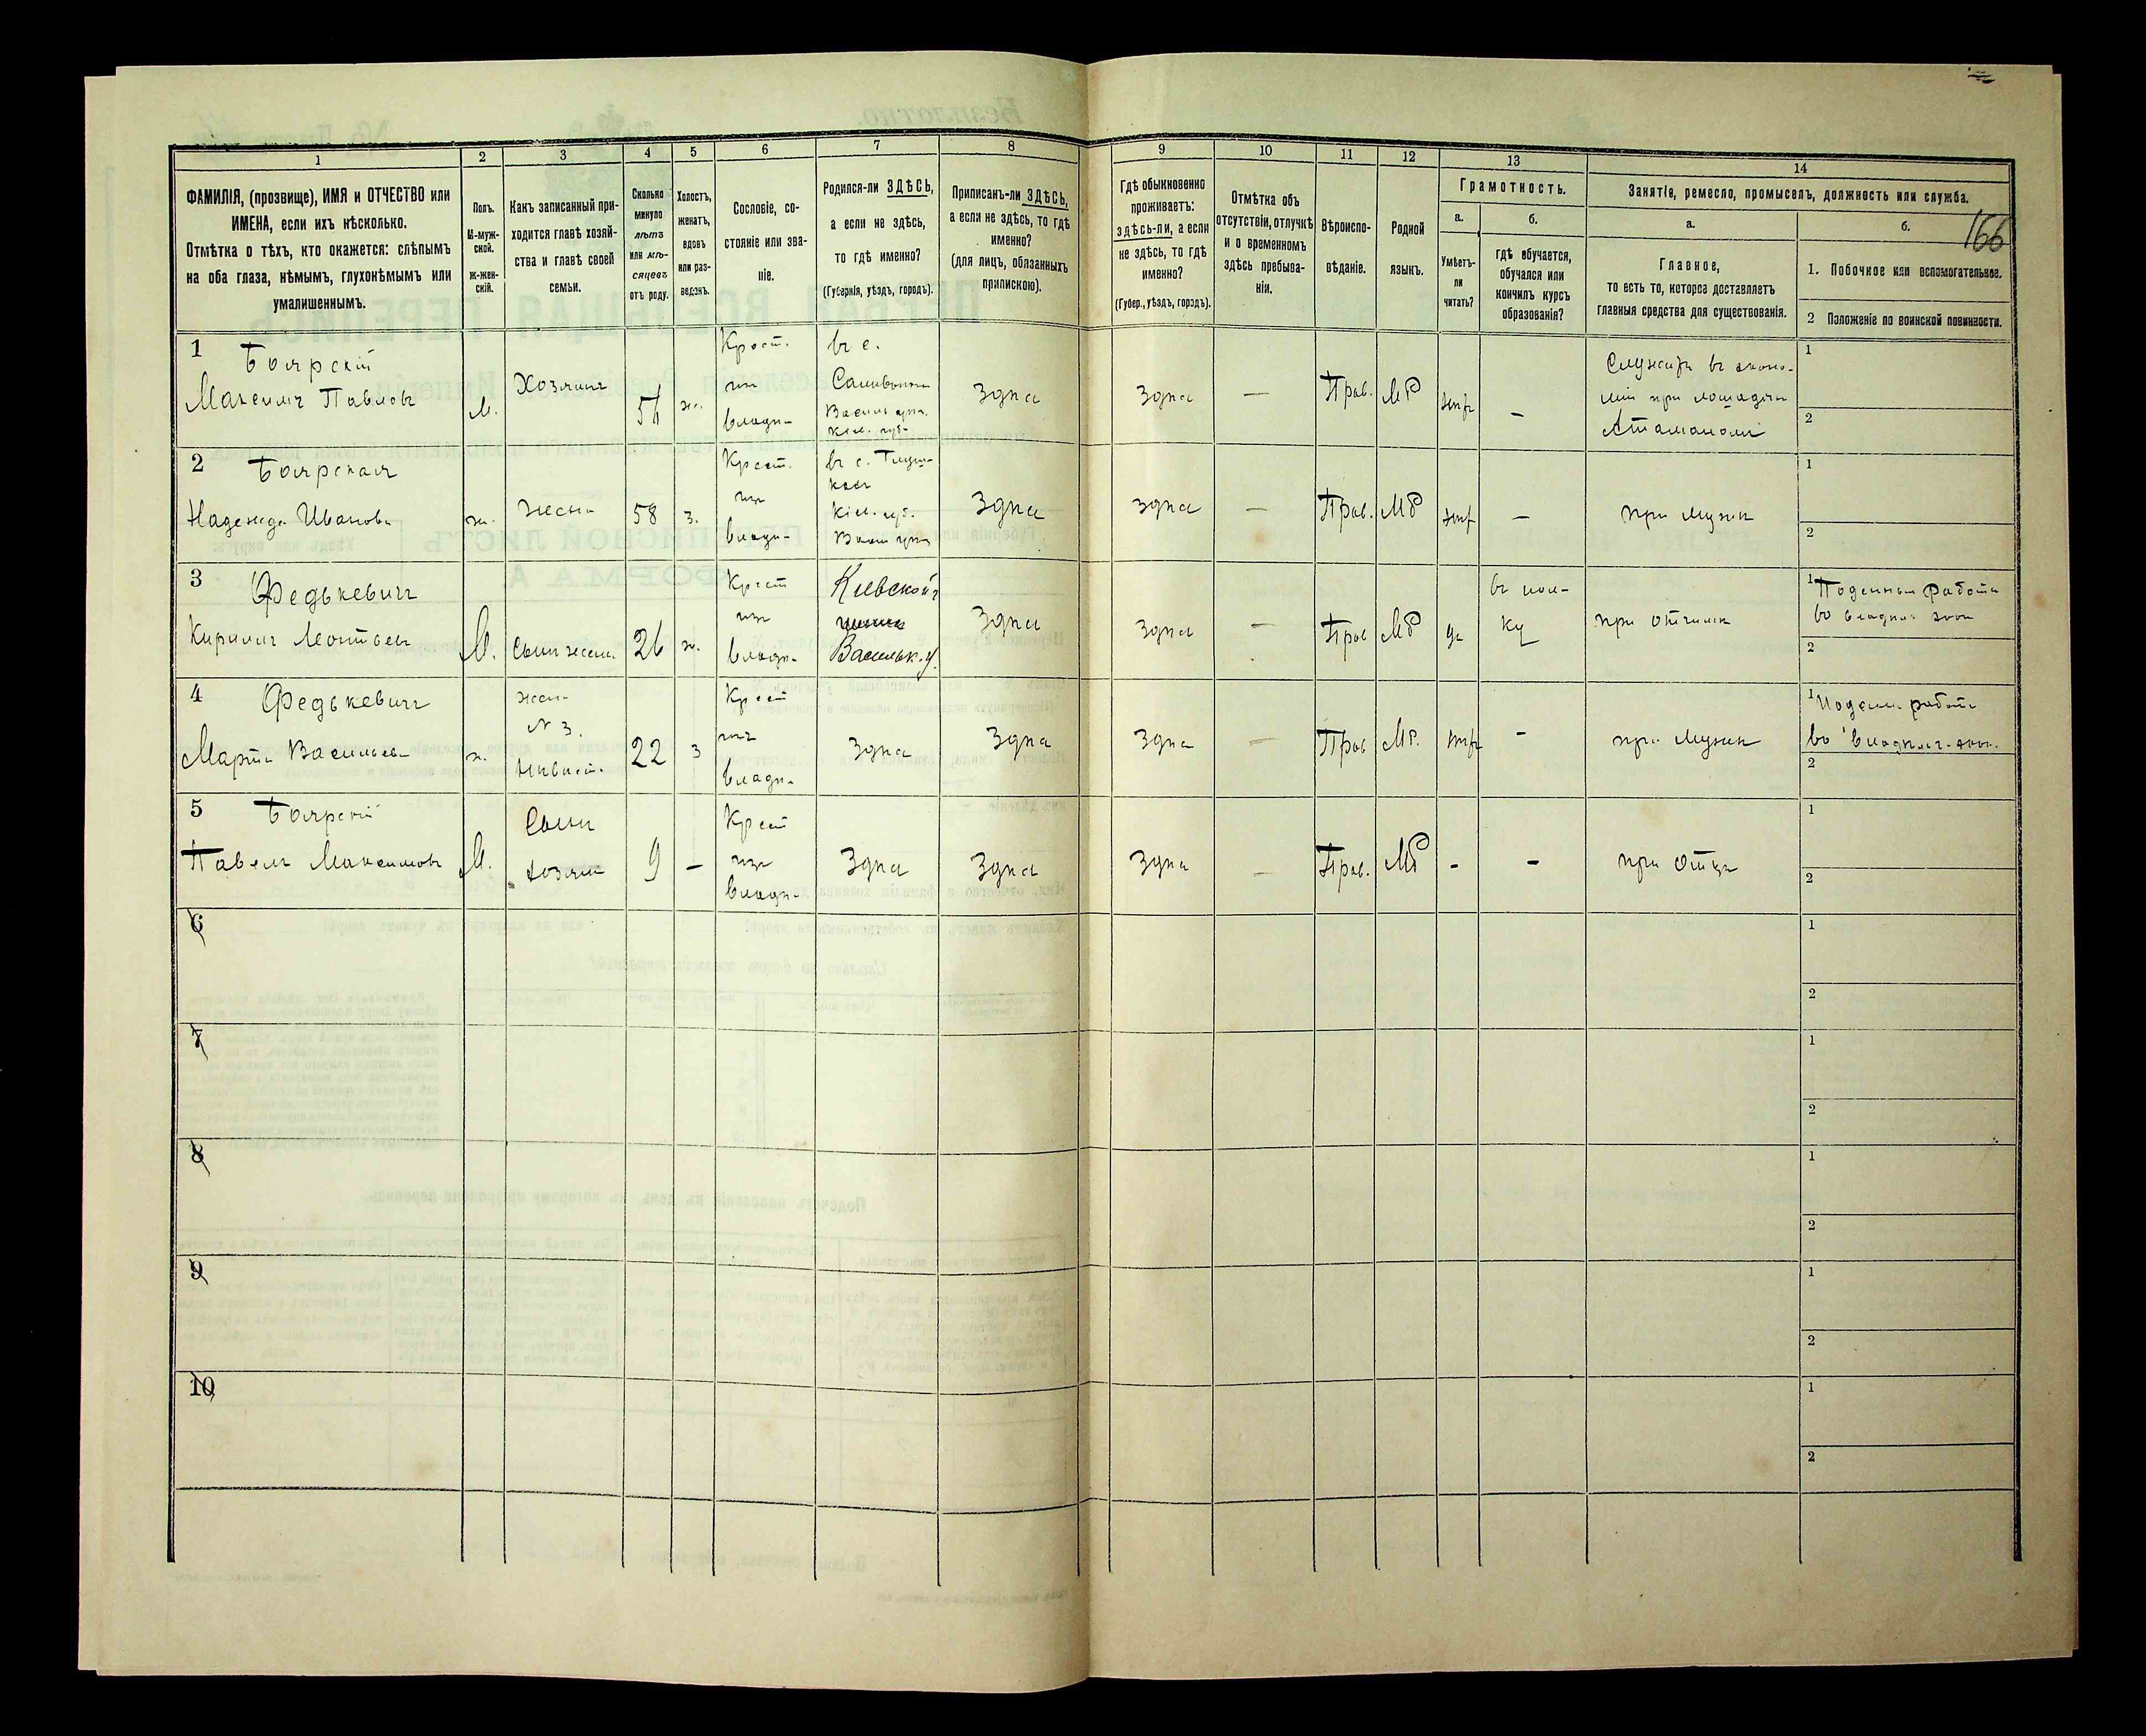 166
1 2 3 4 5 6 7 8 9 10 11 12 13 14
ФАМИЛІЯ, (прозвище), ИМЯ и ОТЧЕСТВО или
ИМЕНА, если ихъ нѣсколько.
Отмѣтка о тѣхъ, кто окажется: слѣпымъ
на оба глаза, нѣмымъ, глухонѣмымъ или
умалишеннымъ.
Полъ.
М-муж-
ской.
Ж-жен-
скій.
Какъ записанный при-
ходится главѣ хозяй-
ства и главѣ своей
семьи.
Сколько
минуло
лѣтъ
или мѣ-
сяцевъ
отъ роду.
Холостъ,
женатъ,
вдовъ
или раз-
веденъ.
Сословіе, со-
стояніе или зва-
ніе.
Родился-ли ЗДѢСЬ,
а если не здѣсь,
то гдѣ именно?
(Губернія, уѣздъ, городъ).
Приписанъ-ли ЗДѢСЬ,
а если не здѣсь, то гдѣ
именно?
(для лицъ, обязанныхъ
припискою).
Гдѣ обыкновенно
проживаетъ:
здѣсь-ли, а если
не здѣсь, то гдѣ
именно?
(Губер., уѣздъ, городъ).
Отмѣтка объ
отсутствіи, отлучкѣ
и о временномъ
здѣсь пребыва-
ніи.
Вѣроиспо-
вѣданіе.
Родной
языкъ.
Грамотность.
а.
Умѣетъ-
ли
читать?
б.
гдѣ обучается,
обучался или
кончилъ курсъ
образованія?
Занятіе, ремесло, промыселъ, должность или служба.
а.
Главное,
то есть то, которое доставляетъ
главныя средства для существованія.
б.
1. Побочное или вспомогательное.
2 Положеніе по воинской повинности.
1 Боярскій
Максимъ Павловъ
М.
Хозяинъ
56
ж.
Крест.
изъ
владѣ-
въ с.
Кіев. губ.
здѣсь
здѣсь
—
Прав.
МР
нѣтъ
—
Служитъ въ эконо-
міи при лошадяхъ
Атаманомъ
1
2
2 Боярская
Надежда Иванова
ж.
жена
58
з.
Крест.
изъ
владѣ-
въ с.
Кіев. губ.
здѣсь
здѣсь
—
Прав.
МР
нѣт
—
при мужѣ
1
2
3 Федькевичъ
Кирилъ Леонтьев
М.
Сынъ жены
26
ж.
Крест
изъ
владѣ-
Кіевской г
Васильк. у.
здѣсь
здѣсь
—
Прав
МР
да
въ пол-
ку
при отчимѣ
1 Поденныя работы
во владѣл. экон
2
4 Федькевичъ
Марта Васильева
ж.
жена
N 3.
Невѣст.
22
з
Крест
изъ
владѣ-
здѣсь
здѣсь
здѣсь
—
Прав
МР.
нѣтъ
-
при мужѣ
1 Поденн работы
во владѣл. экон.
2
5 Боярскій
Павелъ Максимовъ
М.
Сынъ
хозяин
9
—
Крест
изъ
владѣ-
здѣсь
здѣсь
здѣсь
—
Прав.
МР
-
-
при отцѣ
1
2
6
1
2
7
1
2
8
1
2
9
1
2
10
1
2